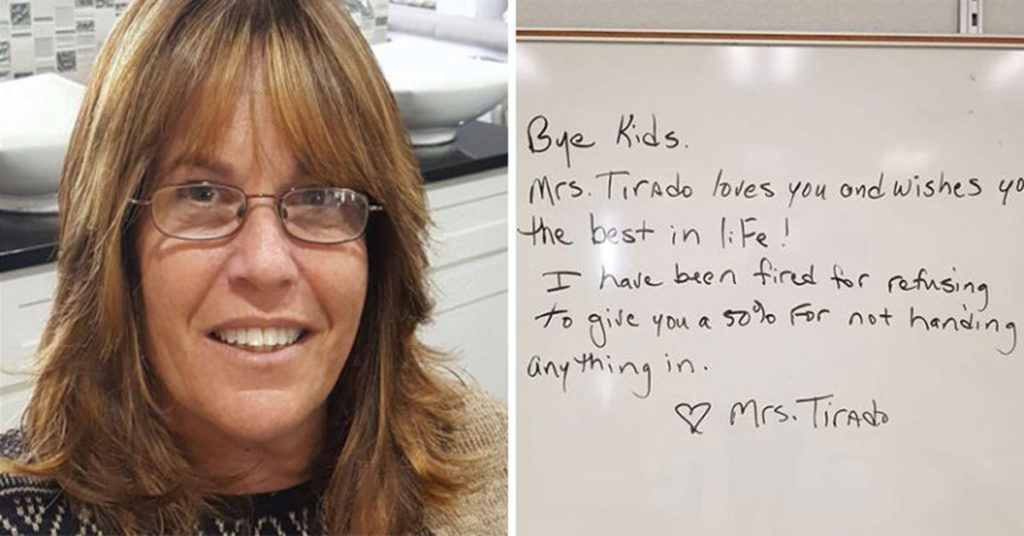 Bye Kids.
Mrs. Tirado loves you and wishes yo
the best in life!
I have been fired for refusing
to give you a 50% for not handing
anything in.
♡ Mrs. Tirado